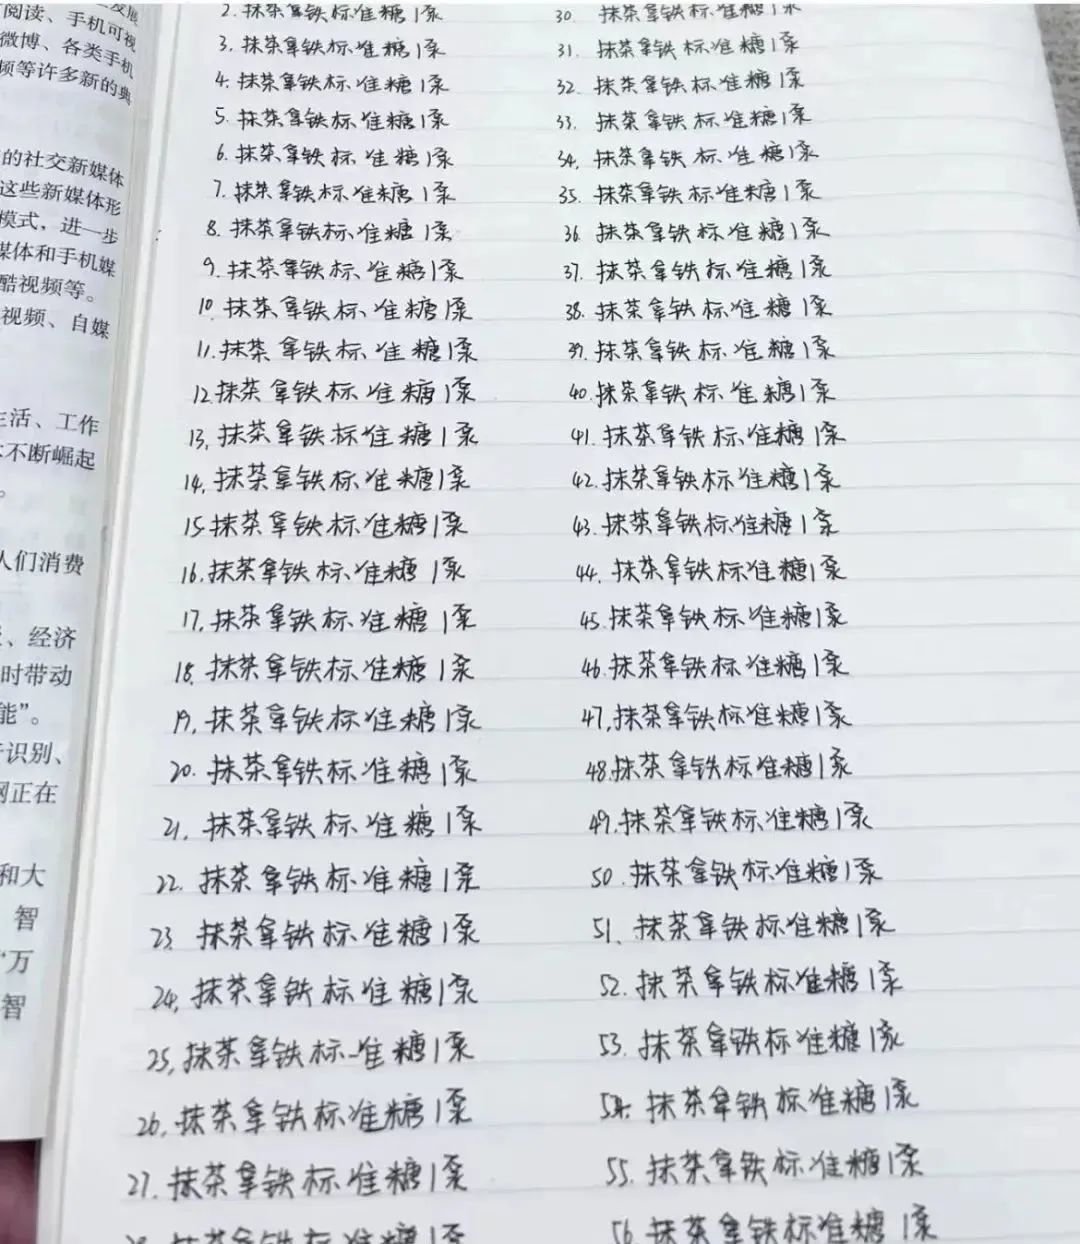 阅读、手机可视
微博、各类手机
频等许多新的典
的社交新媒体
这些新媒体形
模式，进一步
媒体和手机媒
酷视频等。
视频、自媒
生活、工作
不断崛起
。
人们消费
、经济
时带动
能”。
识别、
网正在
和大
智
“万
智
2. 抹茶拿铁标准糖1泵
3. 抹茶拿铁标准糖1泵
4. 抹茶拿铁标准糖1泵
5. 抹茶拿铁标准糖1泵
6. 抹茶拿铁标准糖1泵
7. 抹茶拿铁标准糖1泵
8. 抹茶拿铁标准糖1泵
9. 抹茶拿铁标准糖1泵
10. 抹茶拿铁标准糖1泵
11. 抹茶拿铁标准糖1泵
12. 抹茶拿铁标准糖1泵
13. 抹茶拿铁标准糖1泵
14. 抹茶拿铁标准糖1泵
15. 抹茶拿铁标准糖1泵
16. 抹茶拿铁标准糖1泵
17. 抹茶拿铁标准糖1泵
18. 抹茶拿铁标准糖1泵
19. 抹茶拿铁标准糖1泵
20. 抹茶拿铁标准糖1泵
21. 抹茶拿铁标准糖1泵
22. 抹茶拿铁标准糖1泵
23 抹茶拿铁标准糖1泵
24. 抹茶拿铁标准糖1泵
25. 抹茶拿铁标准糖1泵
26. 抹茶拿铁标准糖1泵
27. 抹茶拿铁标准糖1泵
抹茶拿铁标准糖1泵
30. 抹茶拿铁标准糖1泵
31. 抹茶拿铁标准糖1泵
32. 抹茶拿铁标准糖1泵
33. 抹茶拿铁标准糖1泵
34. 抹茶拿铁标准糖1泵
35. 抹茶拿铁标准糖1泵
36. 抹茶拿铁标准糖1泵
37. 抹茶拿铁标准糖1泵
38. 抹茶拿铁标准糖1泵
39. 抹茶拿铁标准糖1泵
40. 抹茶拿铁标准糖1泵
41. 抹茶拿铁标准糖1泵
42. 抹茶拿铁标准糖1泵
43. 抹茶拿铁标准糖1泵
44. 抹茶拿铁标准糖1泵
45. 抹茶拿铁标准糖1泵
46. 抹茶拿铁标准糖1泵
47. 抹茶拿铁标准糖1泵
48. 抹茶拿铁标准糖1泵
49. 抹茶拿铁标准糖1泵
50. 抹茶拿铁标准糖1泵
51. 抹茶拿铁标准糖1泵
52. 抹茶拿铁标准糖1泵
53. 抹茶拿铁标准糖1泵
54. 抹茶拿铁标准糖1泵
55. 抹茶拿铁标准糖1泵
56 抹茶拿铁标准糖1泵